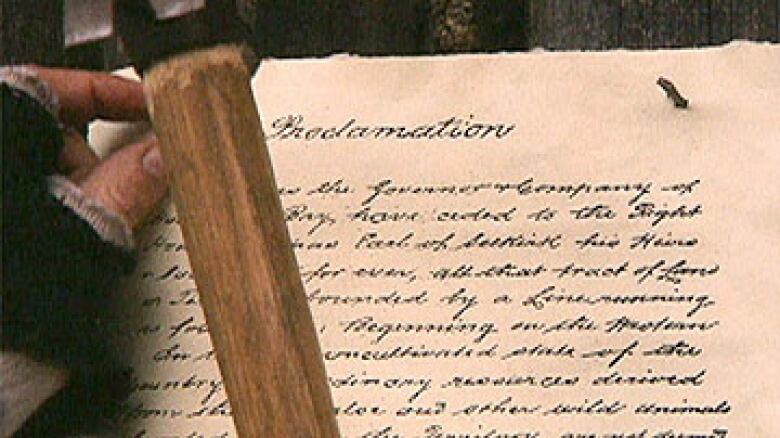 Proclamation
the Governor & Company of
Bay, have ceded to the Right
Earl of Selkirk his Heirs
for ever, all that tract of Land
bounded by a Line running
Beginning on the Western
uncultivated state of the
Country resources derived
from and other wild animals
the Territory are not